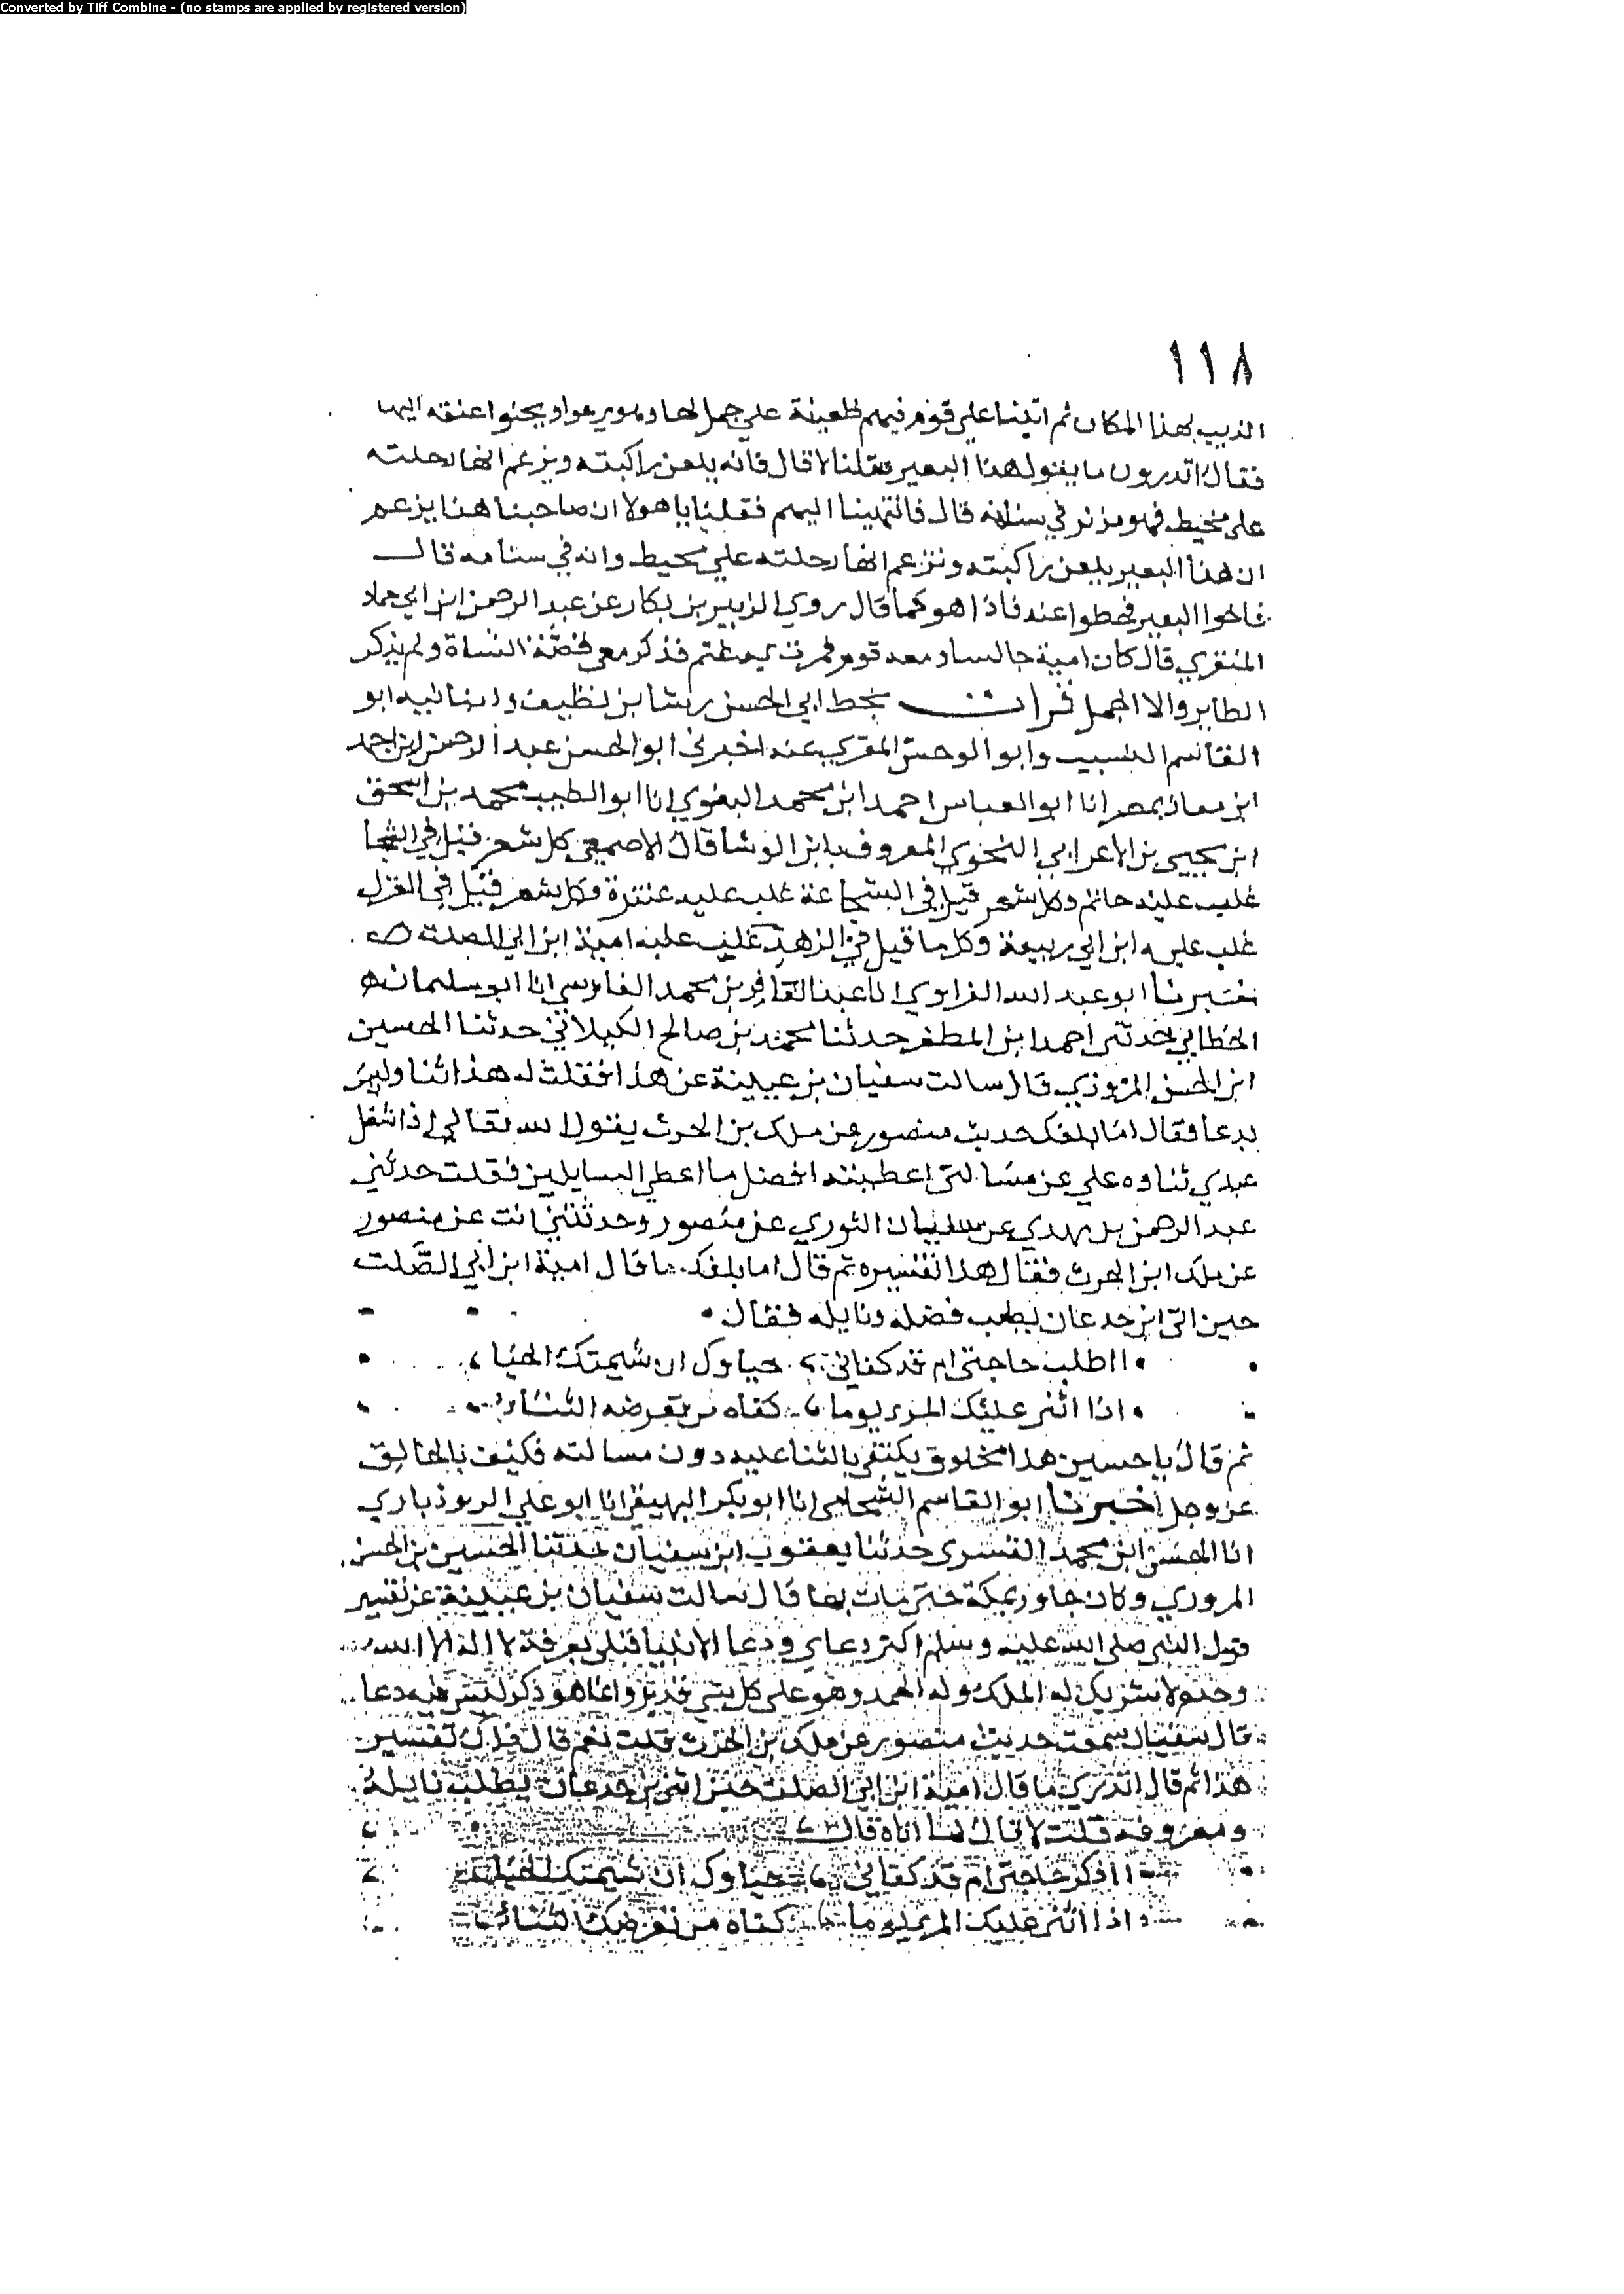 Converted by Tiff Combine - (no stamps are applied by registered version)
١١٨
الذيب بهذا المكان ثم اتينا على قوم فيهم ظعينة على جمل لها وهو يرغوا ويحنوا عنقه اليها
فقال اتدرون ما يقول هذا البعير فقلنا لا قال فانه يلعن راكبته ويزعم انها رحلته
على مخيط فهو في سنامه قال فانتهينا اليهم فقلنا يا هولا ان صاحبنا هذا يزعم
ان هذا البعير يلعن راكبته ونزعم انها رحلته على مخيط وانه في سنامه قال
فاناخوا البعير فحطوا عنه فاذا هو كما قال روي الزبير بن بكار عن عبد الرحمن ابن ابي حماد
المنقري قال كان امية جالسا ومعه قوم فمرت بهم غنم فذكر معي قصة الشاة ولم يذكر
الطاير والا الجمل قرات بخط ابي الحسن رشا بن نظيف وانبانيه ابو
القاسم النسيب وابو الوحش المقري عنه اخبرني ابو الحسن عبد الرحمن ابن احمد
ابن معاذ بمصر انا ابو العباس احمد ابن محمد البغوي انا ابو الطيب محمد بن اسحق
ابن يحيى بن الاعرابي النحوي المعروف بابن الوشا قال الاصمعي كل شعر قيل في السخا
غلب عليه حاتم وكل شعر قيل في الشجاعة غلب عليه عنترة وكل شعر قيل في الغزل
غلب عليه ابن ابي ربيعة وكل ما قيل في الزهد غلب عليه امية ابن ابي الصلت
اخبرنا ابو عبد الله الفراوي انا عبد الغافر بن محمد الفارسي انا ابو سليمان
الخطابي حدثني احمد ابن المظفر حدثنا محمد بن صالح الكيلاني حدثنا الحسين
ابن الحسن المروزي قال سالت سفيان بن عيينة عن هذا فقلت له هذا ثنا وليس
بدعا فقال اما بلغك حديث منصور عن ملك بن الحرث يقول الله تعالى اذا شغل
عبدي ثناوه علي عن مسالتي اعطيته افضل ما اعطي السايلين فقلت حدثني
عبد الرحمن بن مهدي عن سفيان الثوري عن منصور وحدثتني انت عن منصور
عن ملك ابن الحرث فقال هذا تفسيره ثم قال اما بلغك ما قال امية ابن ابي الصلت
حين اتى ابن جدعان يطلب فضله ونايله فقال
ااطلب حاجتي ام قد كفاني حياوك ان شيمتك الحيا
اذا اثنى عليك المرء يوما كفاه من تعرضه الثناء
ثم قال يا حسين هذا مخلوق يكتفي بالثنا عليه دون مسالته فكيف بالخالق
عز وجل اخبرنا ابو القاسم الشحامي انا ابو بكر البيهقي انا ابو علي الروذباري
انا الحسن ابن محمد الفسوي حدثنا يعقوب ابن سفيان حدثنا الحسين بن الحسن
المروزي وكان جاور بمكة حتى مات بها قال سالت سفيان بن عيينة عن تفسير
قول النبي صلى الله عليه وسلم اكثر دعاي ودعا الانبيا قبلي بعرفة لا اله الا الله
وحده لا شريك له الملك وله الحمد وهو على كل شي قدير وانما هو ذكر ليس فيه دعا
قال سفيان سمعت حديث منصور عن ملك بن الحرث قلت نعم قال فذاك تفسير
هذا ثم قال اتدري ما قال امية ابن ابي الصلت حين اتى بن جدعان يطلب نايله
ومعروفه قلت لا قال لما اتاه قال
ااذكر حاجتي ام قد كفاني حياوك ان شيمتك الحيا
اذا اثنى عليك المرء يوما كفاه من تعرضك الثناء